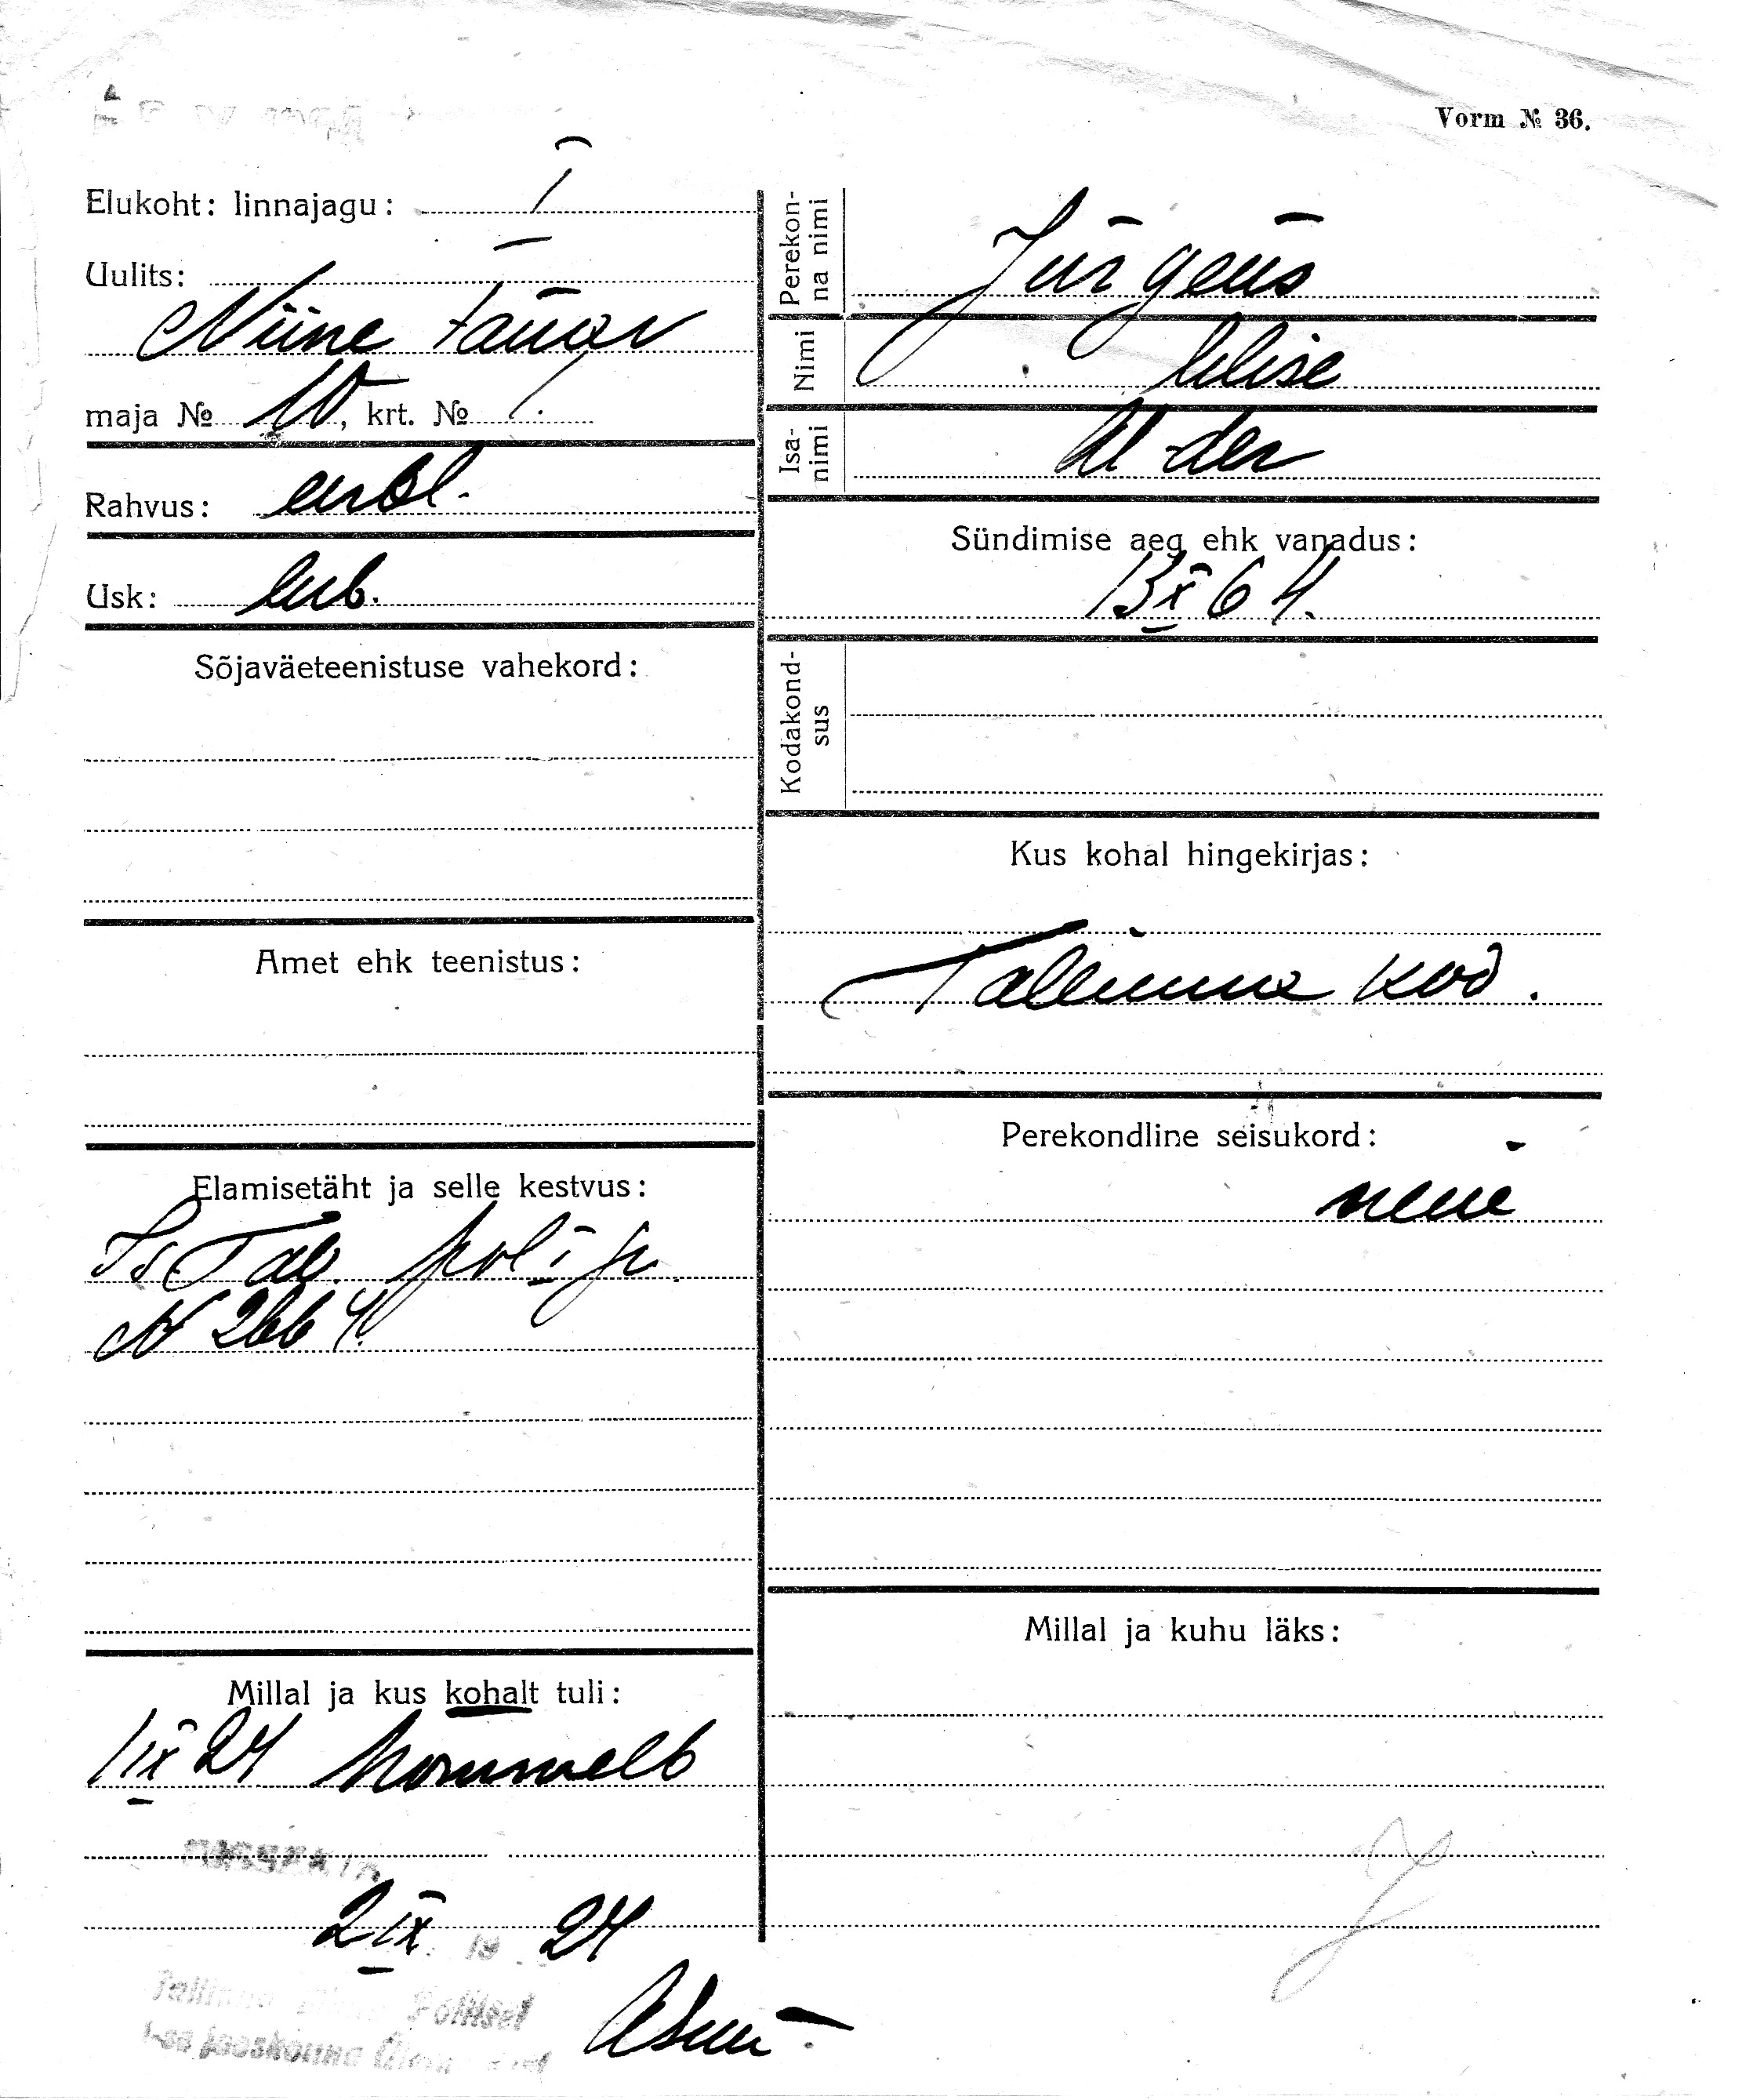 Vorm № 36.
Elukoht: linnajagu: I
Uulits:
Niine tänav
maja № 10, krt. № 1.
Rahvus: eestl.
Usk: lut.
Sõjaväeteenistuse vahekord:
Amet ehk teenistus:
Elamisetäht ja selle kestvus:
Is Tal. pol I jr.
N 2664.
Millal ja kus kohalt tuli:
1 IX 24
2 IX 19 24
Tallinna Politsei
Perekon-
na nimi Jürgens
Nimi
Isa-
nimi
Sündimise aeg ehk vanadus:
13 X 64.
Kodakond-
sus
Kus kohal hingekirjas:
Tallinna kod.
Perekondline seisukord:
Millal ja kuhu läks: